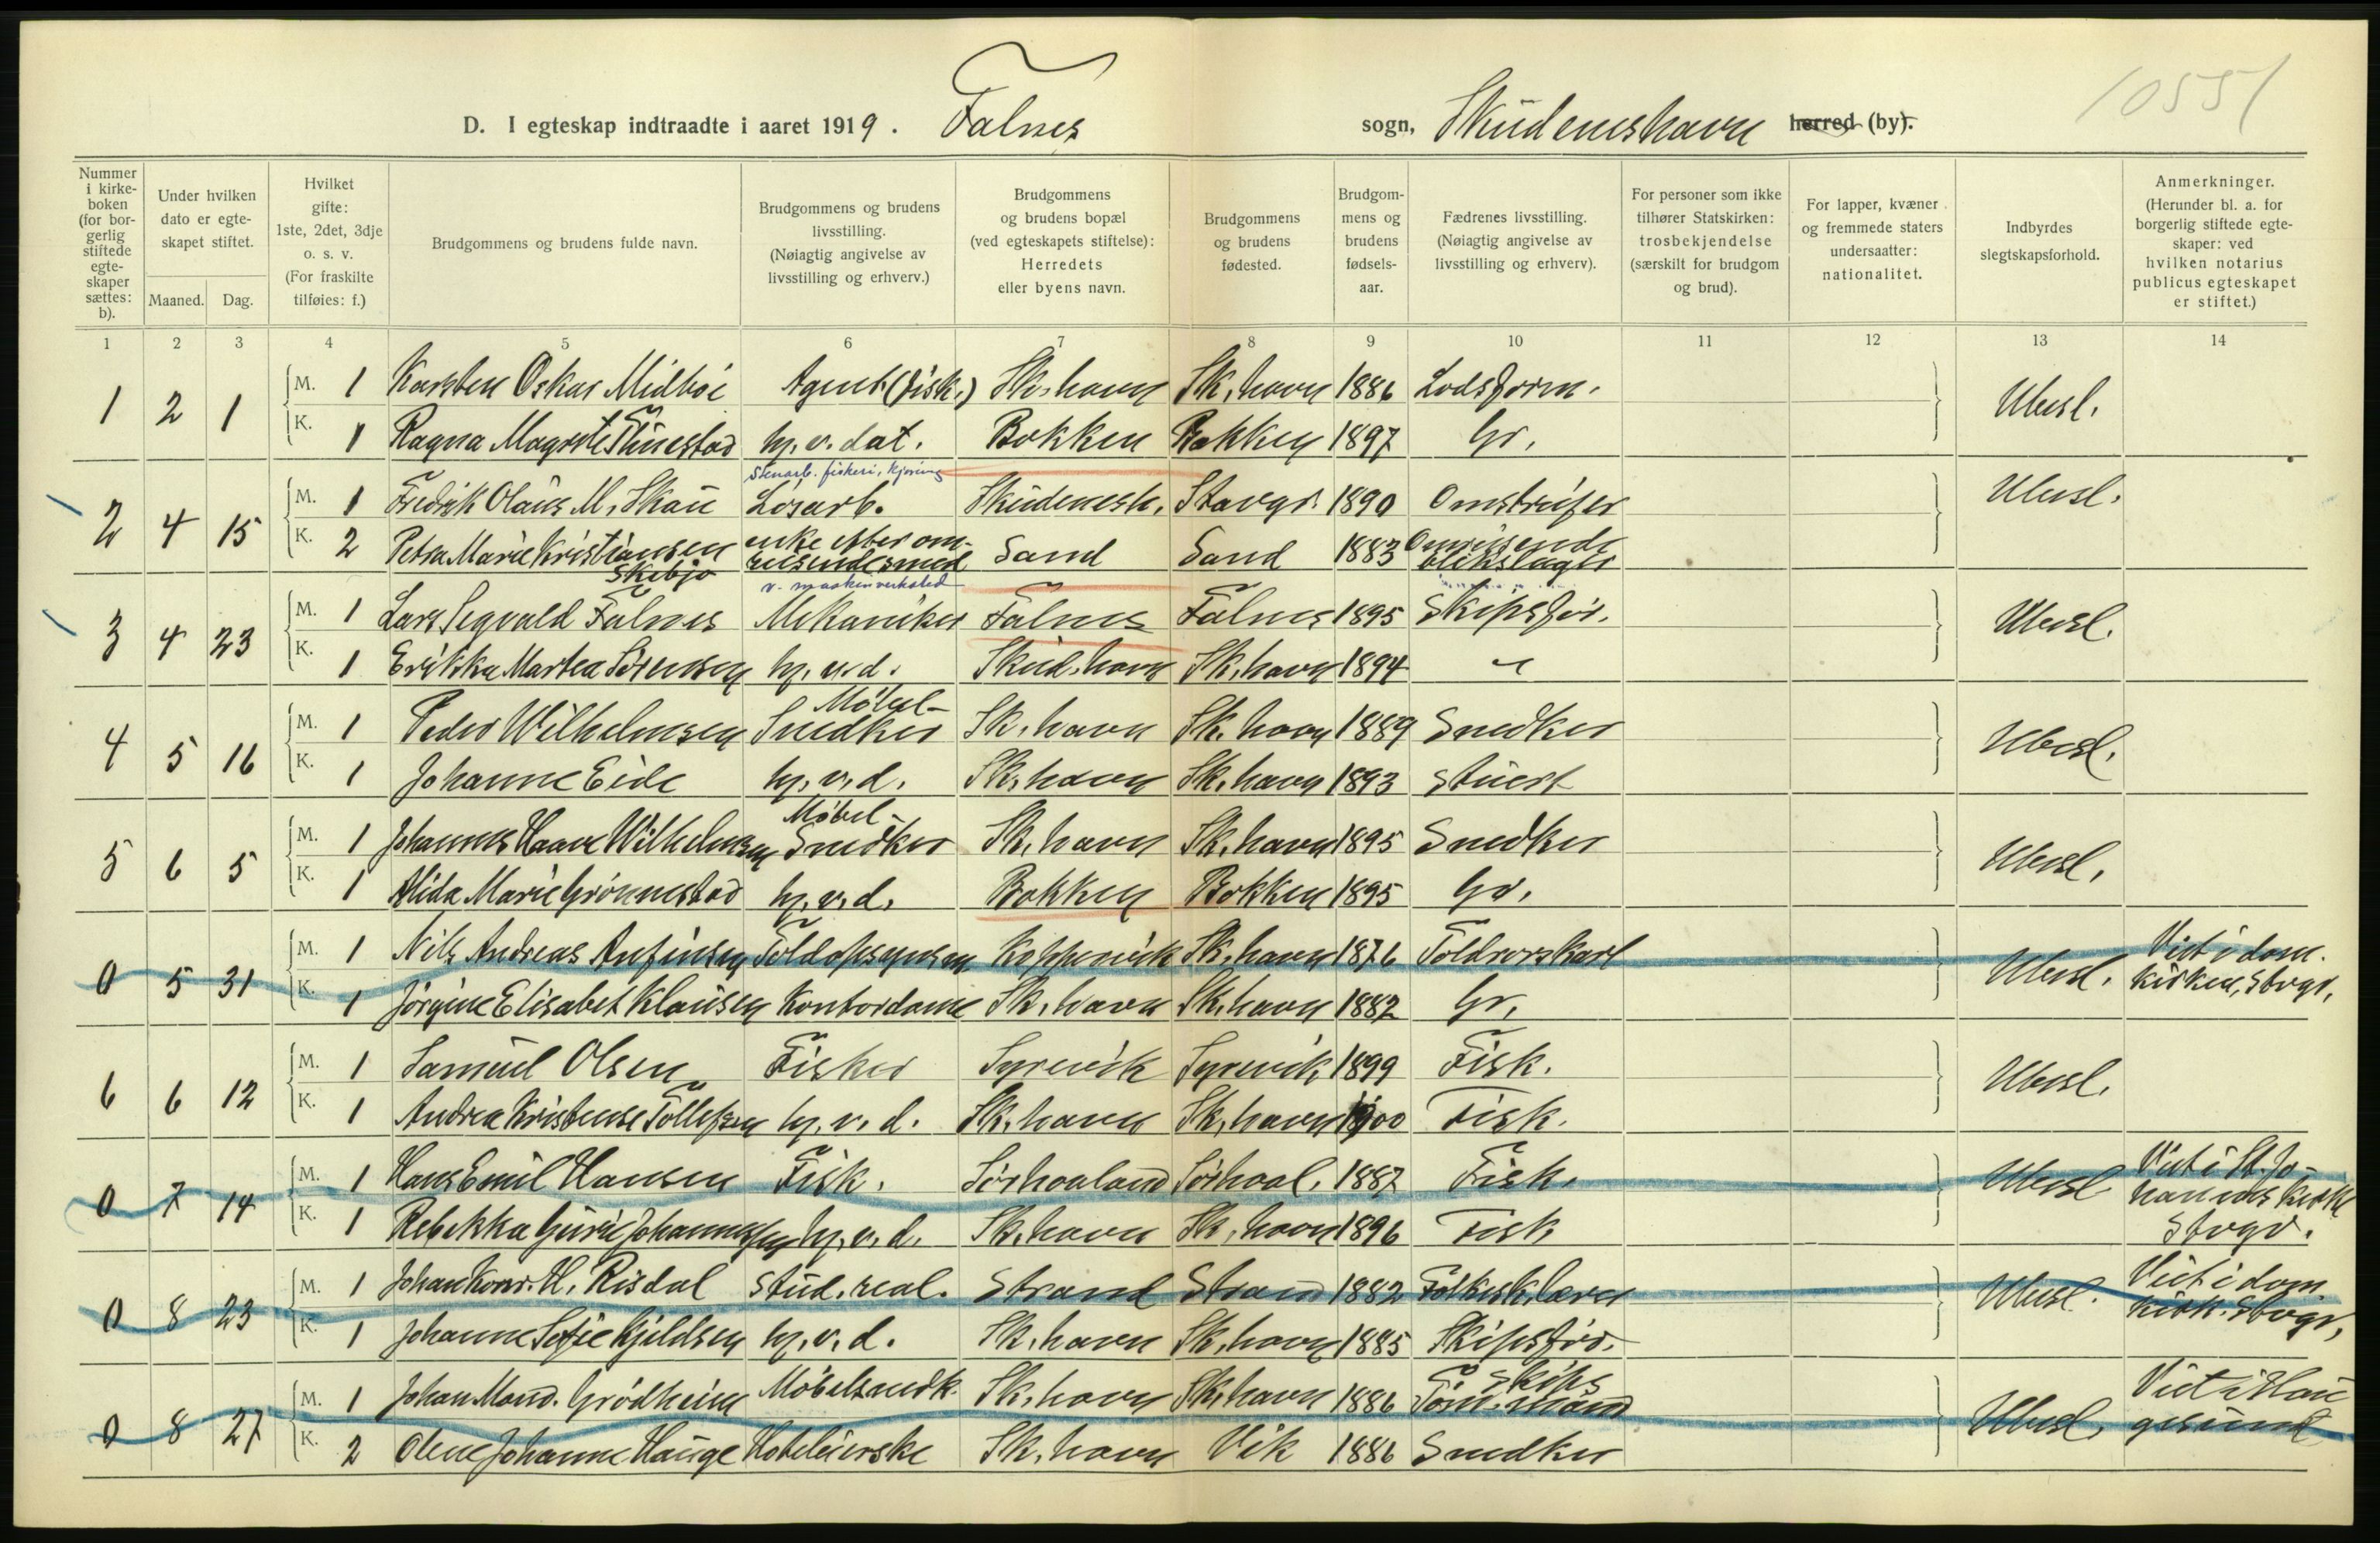 10551
D. I egteskap indtraadte i aaret 1919. Falnes sogn, Skudeneshavn herred (by).
Nummer i kirke- boken (for bor- gerlig stiftede egte- skaper sættes: b).
Under hvilken dato er egte- skapet stiftet.
Maaned. Dag.
Hvilket gifte: 1ste, 2det, 3dje o. s. v. (For fraskilte tilføies: f.)
Brudgommens og brudens fulde navn.
Brudgommens og brudens livsstilling. (Nøiagtig angivelse av livsstilling og erhverv.)
Brudgommens og brudens bopæl (ved egteskapets stiftelse): Herredets eller byens navn.
Brudgommens og brudens fødested.
Brudgom- mens og brudens fødsels- aar.
Fædrenes livsstilling. (Nøiagtig angivelse av livsstilling og erhverv).
For personer som ikke tilhører Statskirken: trosbekjendelse (særskilt for brudgom og brud).
For lapper, kvæner og fremmede staters undersaatter: nationalitet.
Indbyrdes slegtskapsforhold.
Anmerkninger. (Herunder bl. a. for borgerlig stiftede egte- skaper: ved hvilken notarius publicus egteskapet er stiftet.)
1 2 3 4 5 6 7 8 9 10 11 12 13 14
M. 1 Karsten Oskar Midbøe Agent (fisk.) Sk.havn Sk.havn 1886 Lodsform.
1 2 1 Ubesl.
K. 1 Ragna Magrete Tunestad hj. v. dat. Bokken Bokken 1897 Gr.
Stenarb. fiskeri, kjøring
M. 1 Fredrik Olaus M. Skau Løsarb. Skudenesh. Stavgr. 1890 Omstreifer Ubesl.
2 4 15
K. 2 Petra Marie Kristiansen Skibjo enke efter om- reisende smed Sand Sand 1883 Omreisende blikslager
v. maskinverksted
M. 1 Lars Segvald Falnes Mekaniker Falnes Falnes 1895 Skipsfør.
3 4 23 Ubesl.
K. 1 Erikka Martea Sørensen hj. v. d. Skud.havn Sk.havn 1894 "
M. 1 Peder Wilhelmsen Møbel- Snedker Sk.havn Sk.havn 1889 Snedker
4 5 16 Ubesl.
K. 1 Johanne Eide hj. v. d. Sk.havn Sk.havn 1893 Stuert
M. 1 Johannes Haave Wilhelmsen Møbel- Snedker Sk.havn Sk.havn 1895 Snedker
5 6 5 Ubesl.
K. 1 Alida Marie Grønnestad hj. v. d. Bokken Bokken 1895 Gr.
M. 1 Nils Andreas Anfinsen Toldopsynsm. Koppervik Sk.havn 1876 Toldrorskarl
0 5 31 Ubesl. Viet i dom. kirken, Stvgr.
K. 1 Jørgine Elisabet Klausen Kontordame Sk.havn Sk.havn 1882 Gr.
M. 1 Samuel Olsen Fisker Syrevik Syrevik 1899 Fisk.
6 6 12 Ubesl.
K. 1 Andrea Kristense Tollefsen hj. v. d. Sk.havn Sk.havn 1900 Fisk.
M. 1 Hans Emil Hansen Fisk. Sørhaaland Sørhaal. 1887 Fisk.
0 7 14 Ubesl Viet i St. Jo- hannes kirke Stvgr.
K. 1 Rebekka Gurie Johannessen hj. v. d. Sk.havn Sk.havn 1896 Fisk
M. 1 Johan Konr. H. Risdal Stud. real. Strand Strand 1882 Folkesk.lærer
0 8 23 Ubesl. Viet i dom kirk. Stvgr.
K. 1 Johanne Sofie Kjeldsen hj. v. d. Sk.havn Sk.havn 1885 Skipsfør.
M. 1 Johan Mand. Grødheim Møbelsnedk. Sk.havn Sk.havn 1886 Skips Tømmermand
0 8 27 Ubesl. Viet i Hau gesund
K. 2 Olene Johanne Hauge Hoteleierske Sk.havn Vik 1886 Snedker